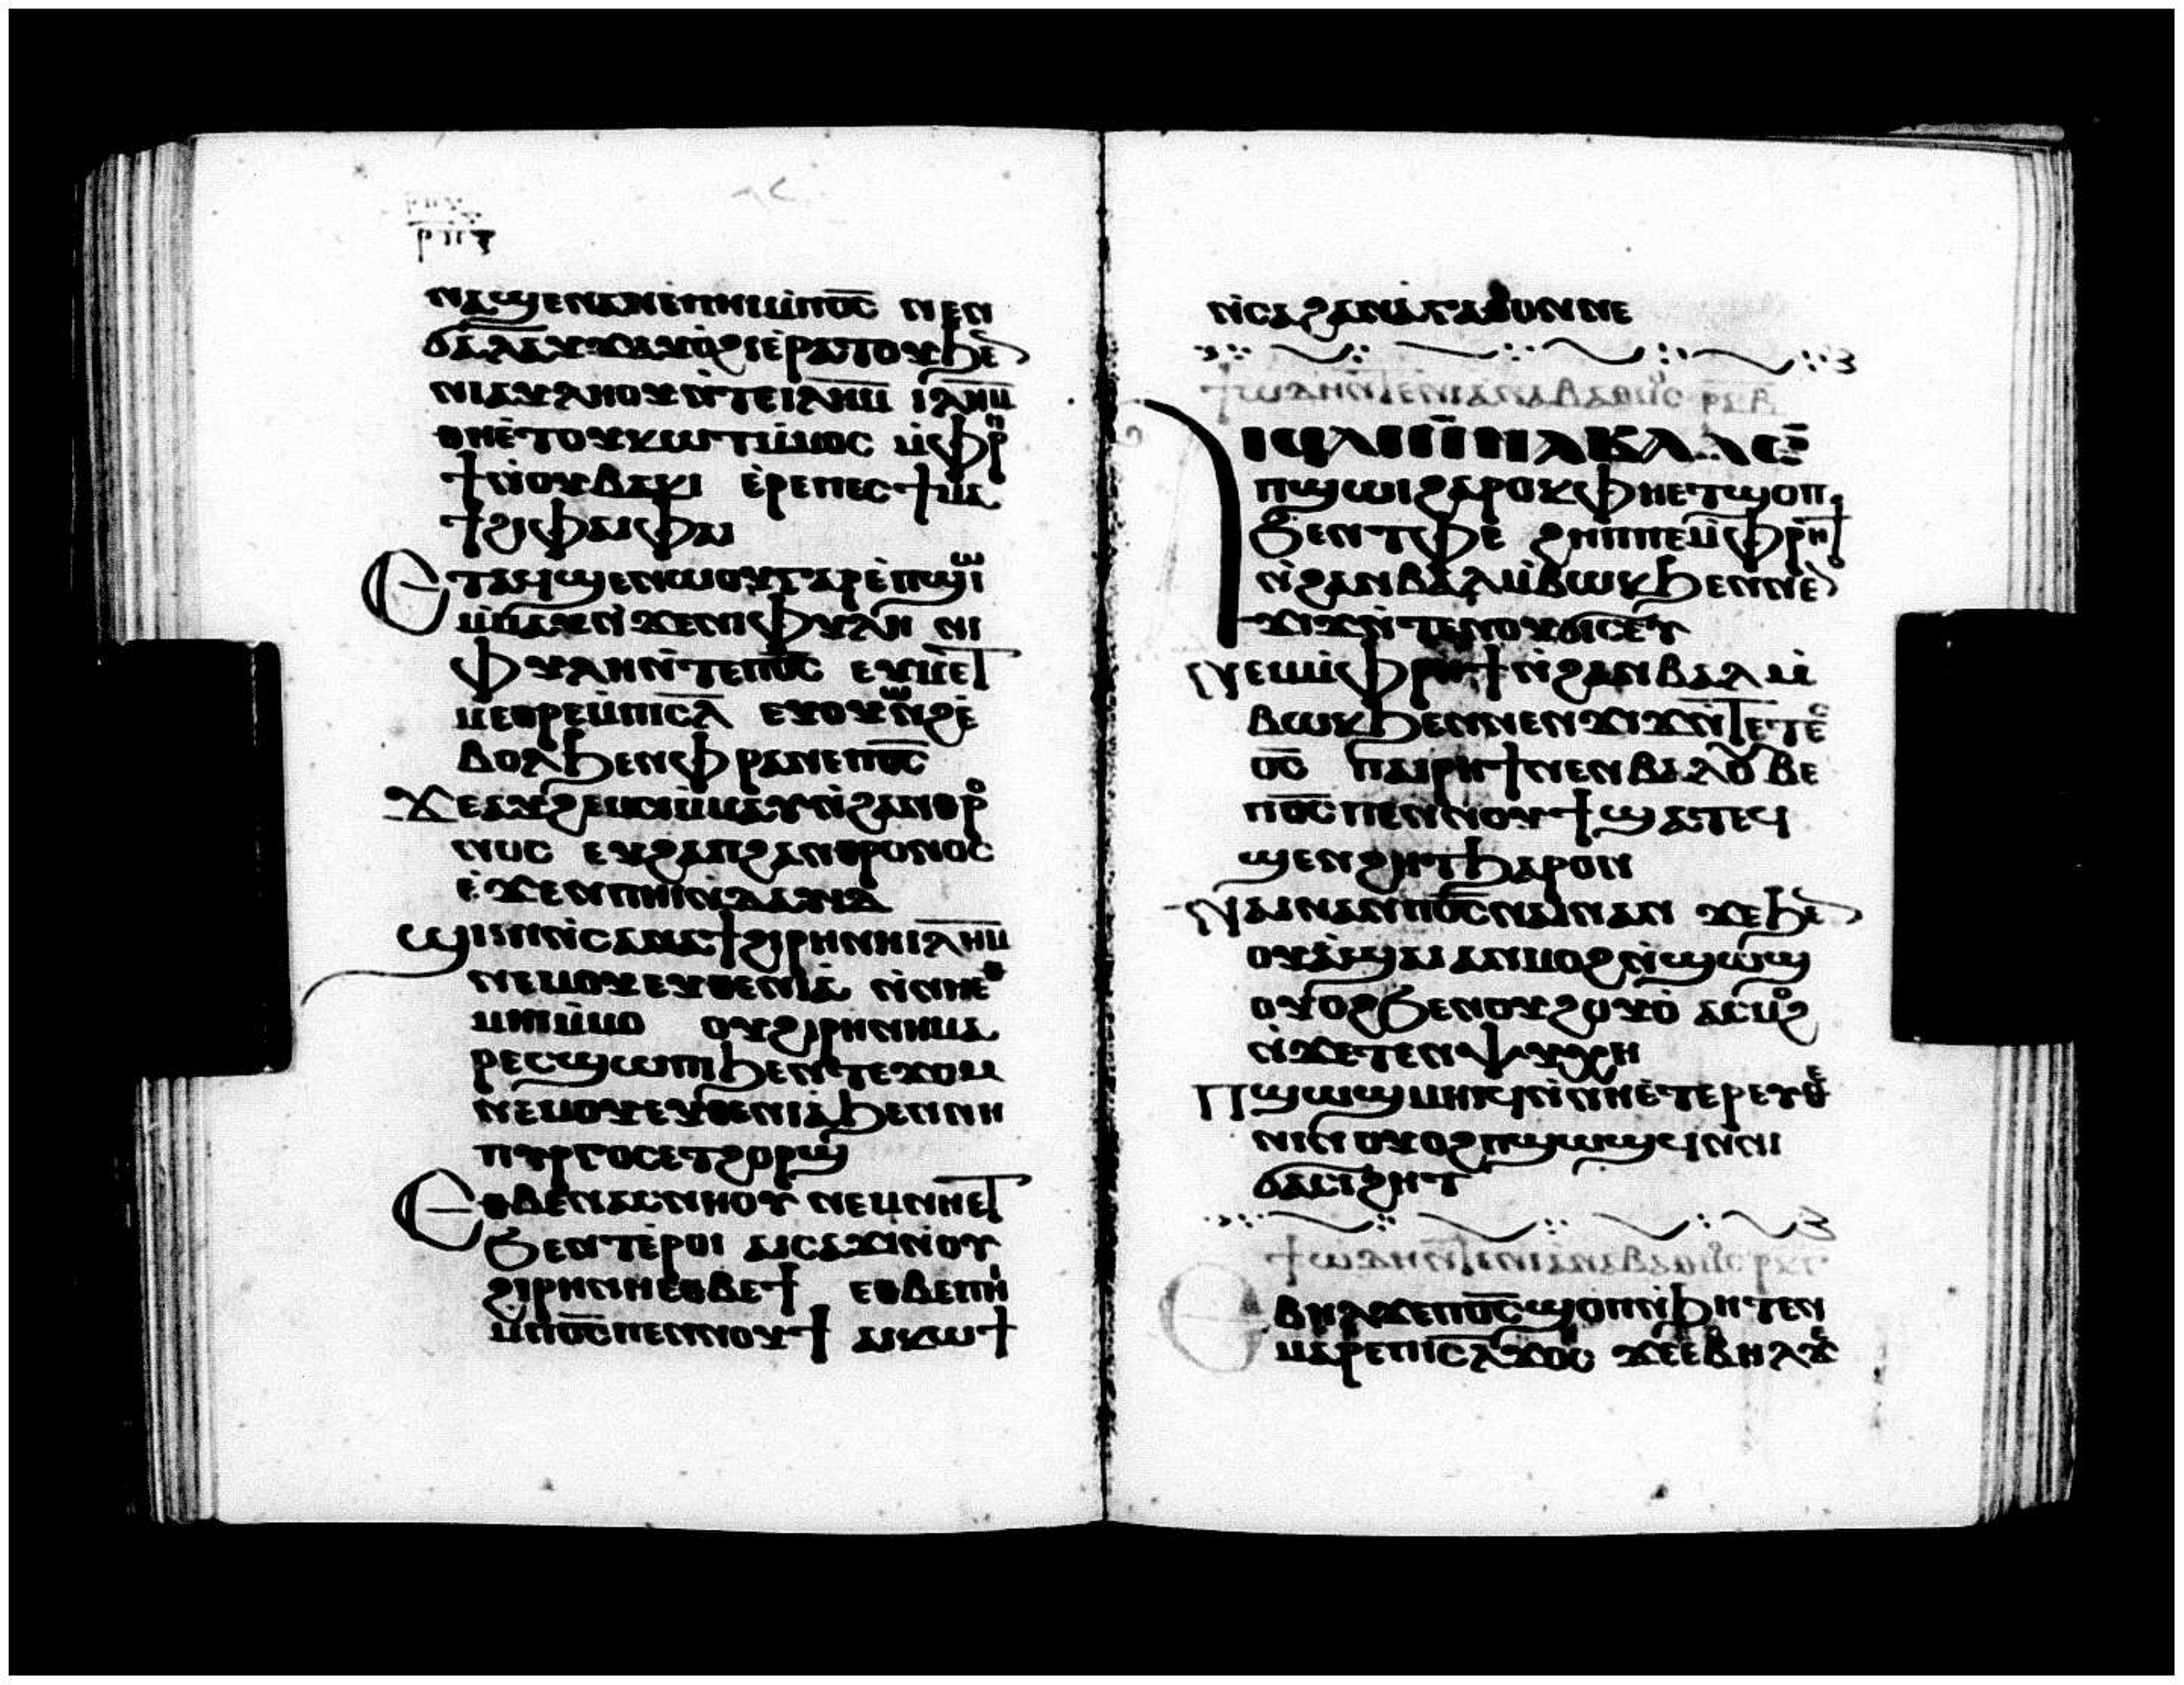 ⲣⲡⲅ
ⲛⲁϣⲉⲛⲁⲛⲉⲡⲏⲓⲙ̀ⲡⲟ̅ⲥ̅ ⲛⲉⲛ
ϭⲁⲗⲁⲩϫⲁⲩⲟ̀ϩⲓⲉ̀ⲣⲁⲧⲟⲩϧⲉ̀
ⲛⲓⲁⲩⲗⲏⲟⲩⲛ̀ⲧⲉⲓⲗ̅ⲏ̅ⲙ̅ ⲓⲗ̅ⲏ̅ⲙ̅
ⲑⲏⲉ̀ⲧⲟⲩⲕⲱⲧⲙ̀ⲙⲟⲥ ⲙ̀ⲫⲣⲏ
ϯⲛ̀ⲟⲩⲃⲁⲕⲓ ⲉ̀ⲣⲉⲡⲉⲥϯⲙⲁ
ϯϩⲓⲫⲁⲓⲫⲁⲓ
Ⲉⲧⲁⲩϣⲉⲛⲱⲟⲩⲅⲁⲣⲉ̀ⲡϣⲱⲓ
ⲙ̀ⲙⲁⲩⲛ̀ϫⲉⲛⲓⲫⲩⲗⲏ ⲛⲓ
ⲫⲩⲗⲏⲛ̀ⲧⲉⲡⲟ̅ⲥ̅ ⲉⲩⲙⲉⲧ
ⲙⲉⲑⲣⲉⲙ̀ⲡⲓⲥ̅ⲗ̅ ⲉⲩⲟⲩⲱⲛϩⲉ̀
ⲃⲟⲗϧⲉⲛⲫⲣⲁⲛⲉⲡⲟ̅ⲥ̅
Ϫⲉⲁⲩϩⲉⲙⲥⲓⲙ̀ⲙⲁⲩⲛ̀ϩⲁⲛⲑⲣⲟ
ⲛⲟⲥ ⲉⲩϩⲁⲡϩⲁⲛⲑⲣⲟⲛⲟⲥ
ⲉ̀ϫⲉⲛⲡⲏⲓⲛ̀ⲇⲁⲩⲓⲇ
Ϣⲓⲛⲓⲛ̀ⲥⲁⲛⲁϯϩⲓⲣⲏⲛⲏⲓⲗ̅ⲏ̅ⲙ̅
ⲛⲉⲙⲟⲩⲉⲩⲑⲉⲛⲓⲁ̀ ⲛ̀ⲛⲏⲉⲑ
ⲙⲏⲓⲙ̀ⲙⲟ ⲟⲩϩⲓⲣⲏⲛⲏⲙⲁ
ⲣⲉⲥϣⲱⲡⲓϧⲉⲛⲧⲉϫⲟⲙ
ⲛⲉⲙⲟⲩⲉⲩⲑⲉⲛⲓⲁ̀ϧⲉⲛⲛⲏ
ⲡⲩⲣⲅⲟⲥⲉⲧϩⲟⲣϣ
Ⲉⲑⲃⲉⲛⲁⲥⲛⲏⲟⲩ ⲛⲉⲙⲛⲏⲉⲧ
ϧⲉⲛⲧⲉ̀ⲣⲟⲓ ⲁⲓⲥⲁϫⲓⲛ̀ⲟⲩ
ϩⲓⲣⲏⲛⲏⲉⲑⲃⲉϯ ⲉⲑⲃⲉⲡⲏⲓ
ⲙ̀ⲡⲟ̅ⲥ̅ⲡⲉⲛⲛⲟⲩϯ ⲁⲓⲕⲱϯ
ⲛ̀ⲥⲁϩⲁⲛⲁ̀ⲅⲁⲑⲟⲛⲛⲉ
ϯⲱⲇⲏⲛ̀ⲧⲉⲛⲓⲁⲛⲁⲃⲁⲑⲙⲟⲥ ⲣⲕⲃ
Ⲁⲓϥⲁⲓⲛ̀ⲛⲁⲃⲁⲗⲉ̀
ⲡϣⲱⲓϩⲁⲣⲟⲕⲫⲏⲉⲧϣⲟⲡ
ϧⲉⲛⲧⲫⲉ ϩⲏⲡⲡⲉⲙ̀ⲫⲣⲏϯ
ⲛ̀ϩⲁⲛⲃⲁⲗⲙ̀ⲃⲱⲕϧⲉⲛⲛⲉⲛ
ϫⲓϫⲛ̀ⲧⲉⲛⲟⲩϭⲓⲥⲉⲩ
Ⲛⲉⲙⲙ̀ⲫⲣⲏϯⲛ̀ϩⲁⲛⲃⲁⲗⲙ̀
ⲃⲱⲕϧⲉⲛⲛⲉⲛϫⲓϫⲛ̀ⲧⲉⲧⲉⲥ
ⲟ̅ⲥ̅ ⲡⲁⲓⲣⲏϯⲛⲉⲛⲃⲁⲗⲟⲩⲃⲉ
ⲡⲟ̅ⲥ̅ⲡⲉⲛⲛⲟⲩϯϣⲁⲧⲉϥ
ϣⲉⲛϩⲏⲧϧⲁⲣⲟⲛ
Ⲛⲁⲓⲛⲁⲛⲡⲟ̅ⲥ̅ⲛⲁⲓⲛⲁⲛ ϫⲉϧⲉⲛ
ⲟⲩⲁ̀ϣⲁⲓⲁⲛⲙⲟϩⲛ̀ϣⲱϣ
ⲟⲩⲟϩϧⲉⲛⲟⲩϩⲟⲩⲟ̀ ⲁⲥⲙⲟϩ
ⲛ̀ϫⲉⲧⲉⲛⲯⲩⲭⲏ
Ⲡϣⲱϣⲙⲏⲓϥⲛ̀ⲛⲏⲉ̀ⲧⲉⲣⲉⲩⲑⲉ
ⲛⲓⲛ ⲟⲩⲟϩⲡϣⲱϣϥⲛ̀ⲛⲓ
ϭⲁⲥⲓϩⲏⲧ
ϯⲱⲇⲏⲛ̀ⲧⲉⲛⲓⲁⲛⲁⲃⲁⲑⲙⲟⲥ ⲣⲕⲅ
Ⲉⲃⲏⲗϫⲉⲡⲟ̅ⲥ̅ϣⲟⲡⲛ̀ϧⲏⲧⲉⲛ
ⲙⲁⲣⲉⲡⲓⲥ̅ⲗ̅ϫⲟⲥ ϫⲉⲉⲃⲏⲗϫⲉ